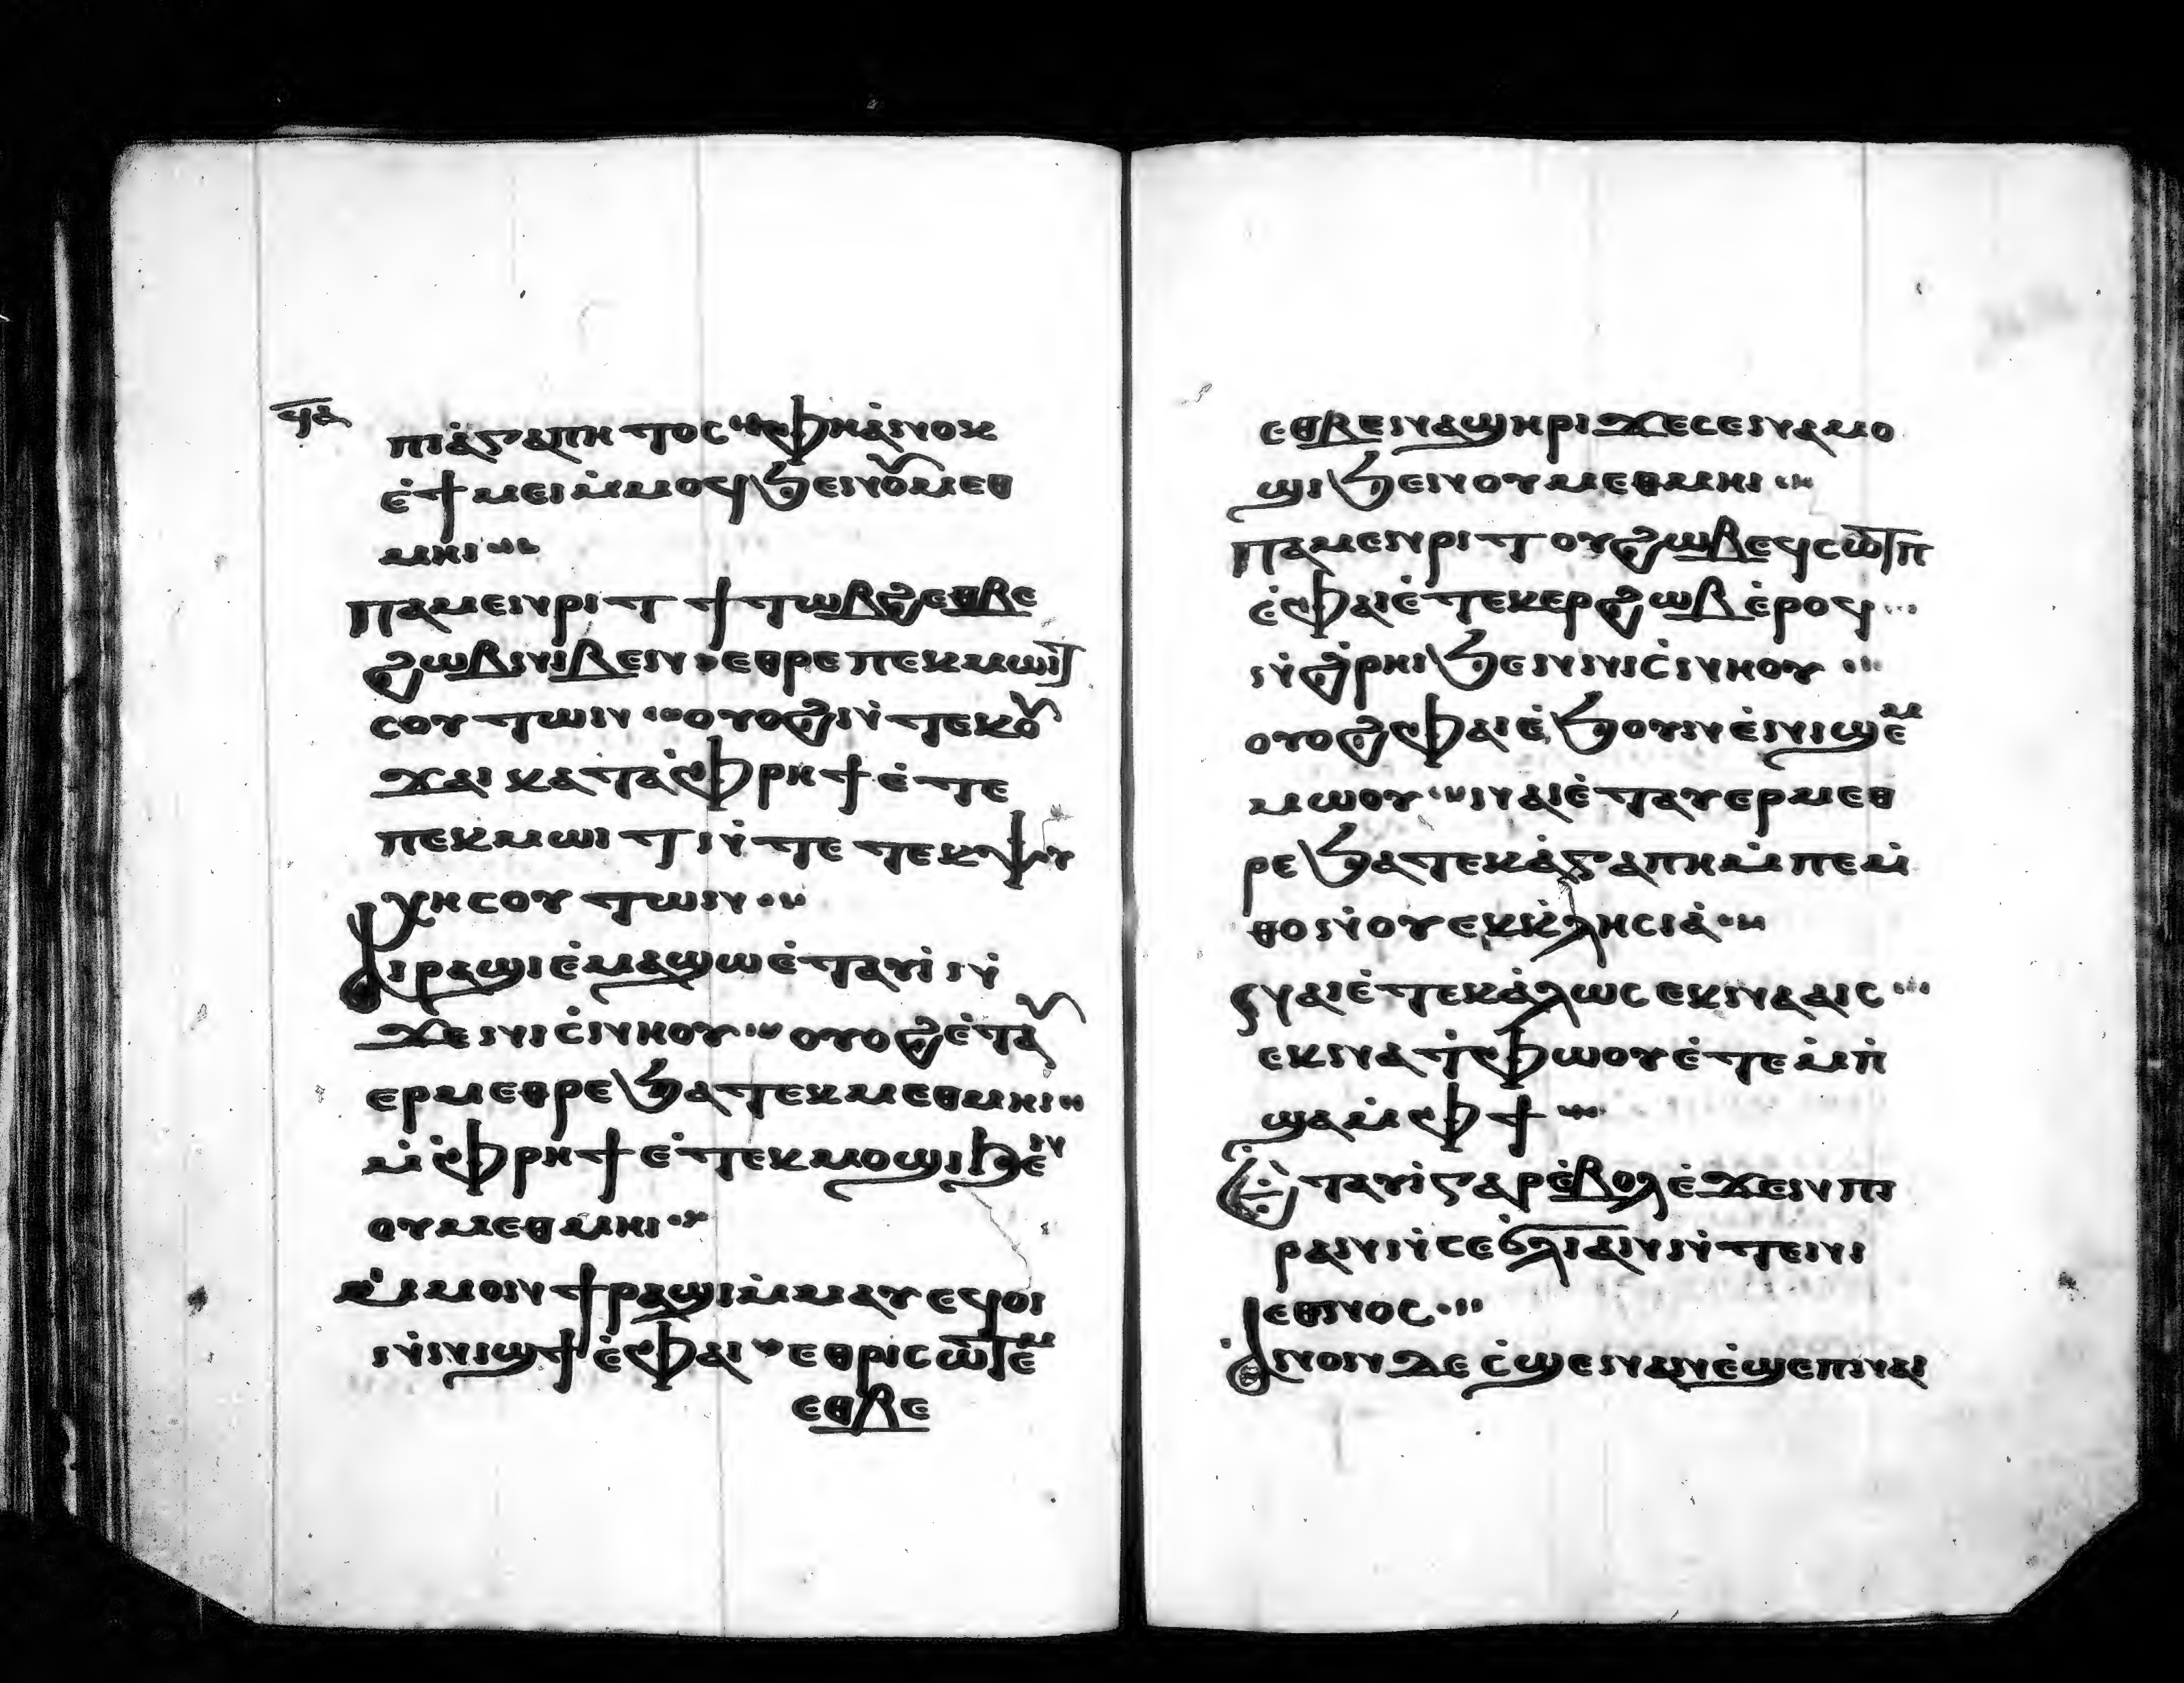 ϥⲁ
ⲡⲓⲁ̇ⲅⲁⲡⲏⲧⲟⲥ ⲫⲏⲁ̇ⲛⲟⲕ
ⲉ̇ϯⲙⲉⲓⲙ̇ⲙⲟϥ ϧⲉⲛⲟⲩⲙⲉⲑ
ⲙⲏⲓ
ⲡⲁⲙⲉⲛⲣⲓⲧ ϯⲧⲱⲃϩ ⲉⲑⲃⲉ
ϩⲱⲃ ⲛⲓⲃⲉⲛ ⲉⲑⲣⲉ ⲡⲉⲕⲙⲱⲓⲧ
ⲥⲟⲩⲧⲱⲛ ⲟⲩⲟϩ ⲛ̇ⲧⲉⲕⲟⲩ
ϫⲁⲓ ⲕⲁⲧⲁⲫ̇ⲣⲏϯ ⲉ̇ⲧⲉ
ⲡⲉⲕⲙⲱⲓⲧ ⲛ̇ⲧⲉ ⲧⲉⲕⲯⲩ
ⲭⲏ ⲥⲟⲩⲧⲱⲛ
ⲁⲓⲣⲁϣⲓ ⲉ̇ⲙⲁϣⲱ ⲉ̇ⲧⲁⲩⲓ̇ ⲛ̇
ϫⲉ ⲛⲓⲥ̇ⲛⲏⲟⲩ ⲟⲩⲟϩ ⲉ̇ⲧⲁⲩ
ⲉⲣⲙⲉⲑⲣⲉ ϧⲁ ⲧⲉⲕⲙⲉⲑⲙⲏⲓ
ⲙ̇ⲫ̇ⲣⲏϯ ⲉ̇ⲧⲉⲕⲙⲟϣⲓ ϧⲉ̇ⲛ
ⲟⲩⲙⲉⲑⲙⲏⲓ
ⲙ̇ⲙⲟⲛ ϯⲣⲁϣⲓ ⲙ̇ⲙⲁⲩ ⲉϥⲟⲓ
ⲛ̇ⲛⲓϣϯ ⲉ̇ⲫⲁⲓ ⲉⲑⲣⲓⲥⲱⲧⲉ̇ⲙ
ⲉⲑⲃⲉ
ⲉⲑⲃⲉ ⲛⲁϣⲏⲣⲓ ϫⲉ ⲥⲉⲛⲁⲙⲟ
ϣⲓ ϧⲉⲛ ⲟⲩⲙⲉⲑⲙⲏⲓ
ⲡⲁⲙⲉⲛⲣⲓⲧ ⲟⲩϩⲱⲃ ⲉϥⲥⲱⲧⲡ
ⲉ̇ⲫⲁⲓ ⲉ̇ⲧⲉⲕⲉⲣϩⲱⲃ ⲉ̇ⲣⲟϥ
ⲛ̇ϩ̇ⲣⲏⲓ ϧⲉⲛ ⲛⲓⲥ̇ⲛⲏⲟⲩ
ⲟⲩⲟϩ ⲫⲁⲓ ⲉ̇ϧⲟⲩⲛ ⲉ̇ⲛⲓϣⲉ̇ⲙ
ⲙⲱⲟⲩ ⲛⲁⲓ ⲉ̇ⲧⲁⲩⲉⲣⲙⲉⲑ
ⲣⲉ ϧⲁ ⲧⲉⲕⲁ̇ⲅⲁⲡⲏ ⲙ̇ⲡⲉⲙ̇
ⲑⲟ ⲛ̇ⲟⲩⲉⲕⲕ̇ⲗⲏⲥⲓⲁ̇
ⲛⲁⲓ ⲉ̇ⲧⲉ ⲕⲁ̇ⲗⲱⲥ ⲉⲕⲛⲁⲁⲓⲥ
ⲉⲕⲛⲁⲧⲫ̇ⲱⲟⲩ ⲉ̇ⲧⲉ ⲙ̇ⲡ̇
ϣⲁ ⲙ̇ⲫϯ
ⲉ̇ⲧⲁⲩⲓ̇ ⲅⲁⲣ ⲉ̇ⲃⲟⲗ ⲉ̇ϫⲉⲛ ⲡⲓ
ⲣⲁⲛ ⲛ̇ⲥⲉϭ̇ⲗⲓ ⲁⲛ ⲛ̇ⲧⲉⲛⲓ
ⲉⲑⲛⲟⲥ
ⲁⲛⲟⲛ ⲇⲉ ⲥ̇ϣⲉ ⲛⲁⲛ ⲉ̇ϣⲉⲡ ⲛⲁⲓ